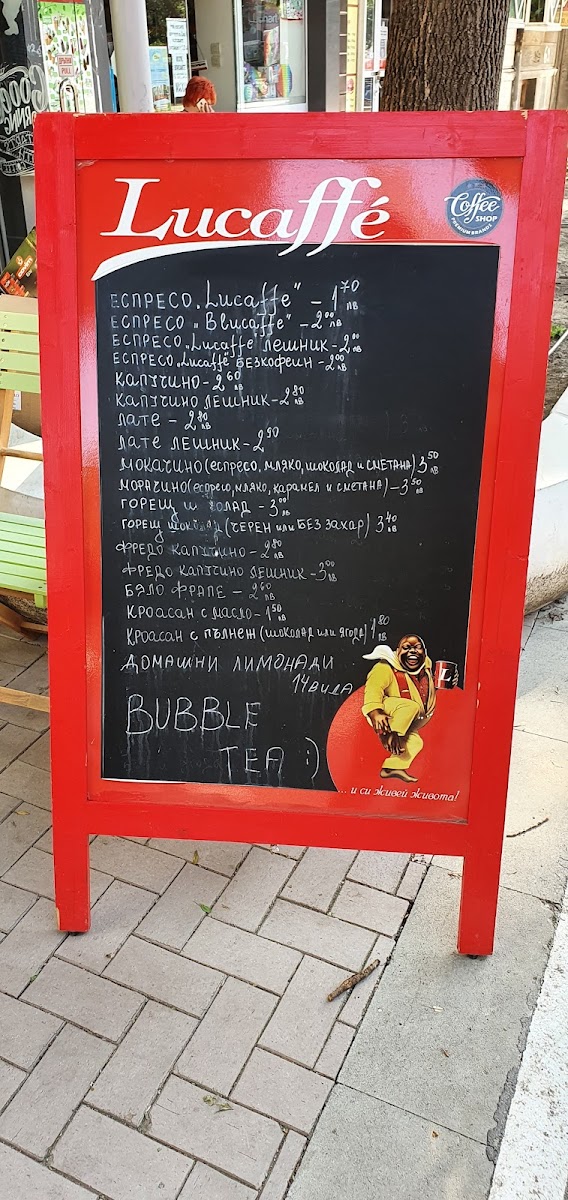 Lucaffé
Coffee
SHOP
PREMIUM BRANDS
ЕСПРЕСО „Lucaffe" - 1 70 лв
ЕСПРЕСО „Blucaffe" - 2 00 лв
ЕСПРЕСО „Lucaffe" ЛЕШНИК - 2 00 лв
ЕСПРЕСО „Lucaffe" БЕЗКОФЕИН - 2 00 лв
КАПУЧИНО - 2 60 лв
КАПУЧИНО ЛЕШНИК - 2 80 лв
ЛАТЕ - 2 80 лв
ЛАТЕ ЛЕШНИК - 2 90
МОКАЧИНО (ЕСПРЕСО, МЛЯКО, ШОКОЛАД И СМЕТАНА) 3 50 лв
МОРАЧИНО (ЕСПРЕСО, МЛЯКО, КАРАМЕЛ И СМЕТАНА) - 3 50 лв
ГОРЕЩ ШОКОЛАД - 3 00 лв
ГОРЕЩ ШОКОЛАД (ЧЕРЕН ИЛИ БЕЗ ЗАХАР) 3 40 лв
ФРЕДО КАПУЧИНО - 2 80 лв
ФРЕДО КАПУЧИНО ЛЕШНИК - 3 00 лв
БЯЛО ФРАПЕ - 2 60 лв
КРОАСАН С МАСЛО - 1 50 лв
КРОАСАН С ПЪЛНЕЖ (ШОКОЛАД ИЛИ ЯГОДА) 1 80 лв
ДОМАШНИ ЛИМОНАДИ
14 ВИДА
BUBBLE
TEA :)
L
... и си живей живота!